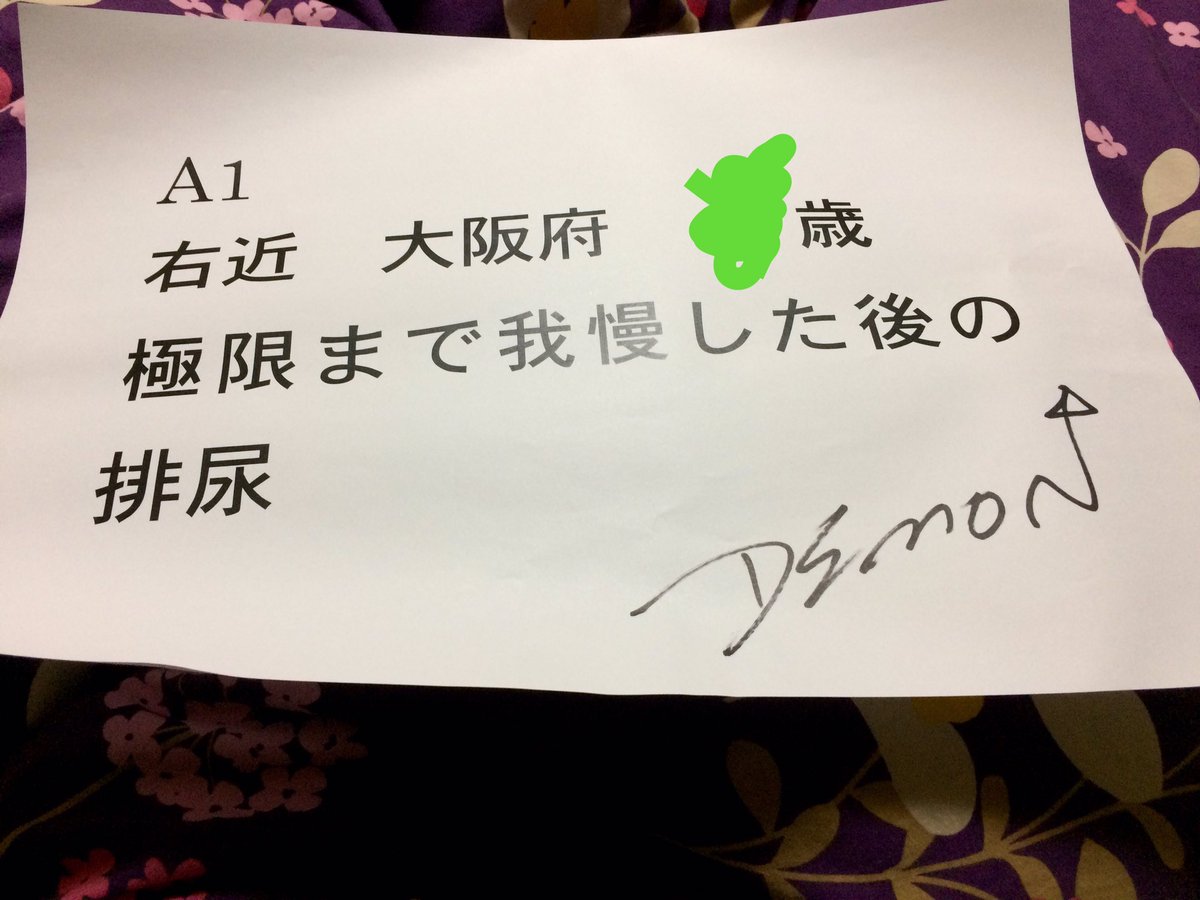 A1
右近 大阪府 歳
極限まで我慢した後の
排尿
DEMON